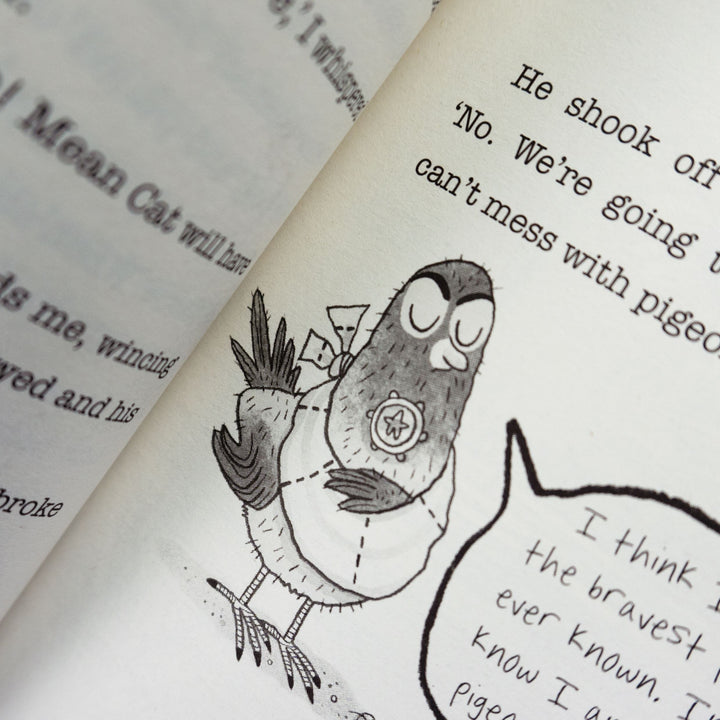 ,' I whispere
! Mean Cat will have
ds me, wincing
yed and his
broke
He shook off
'No. We're going t
can't mess with pigeo
I think I
the bravest
ever known. I
know I a
pige